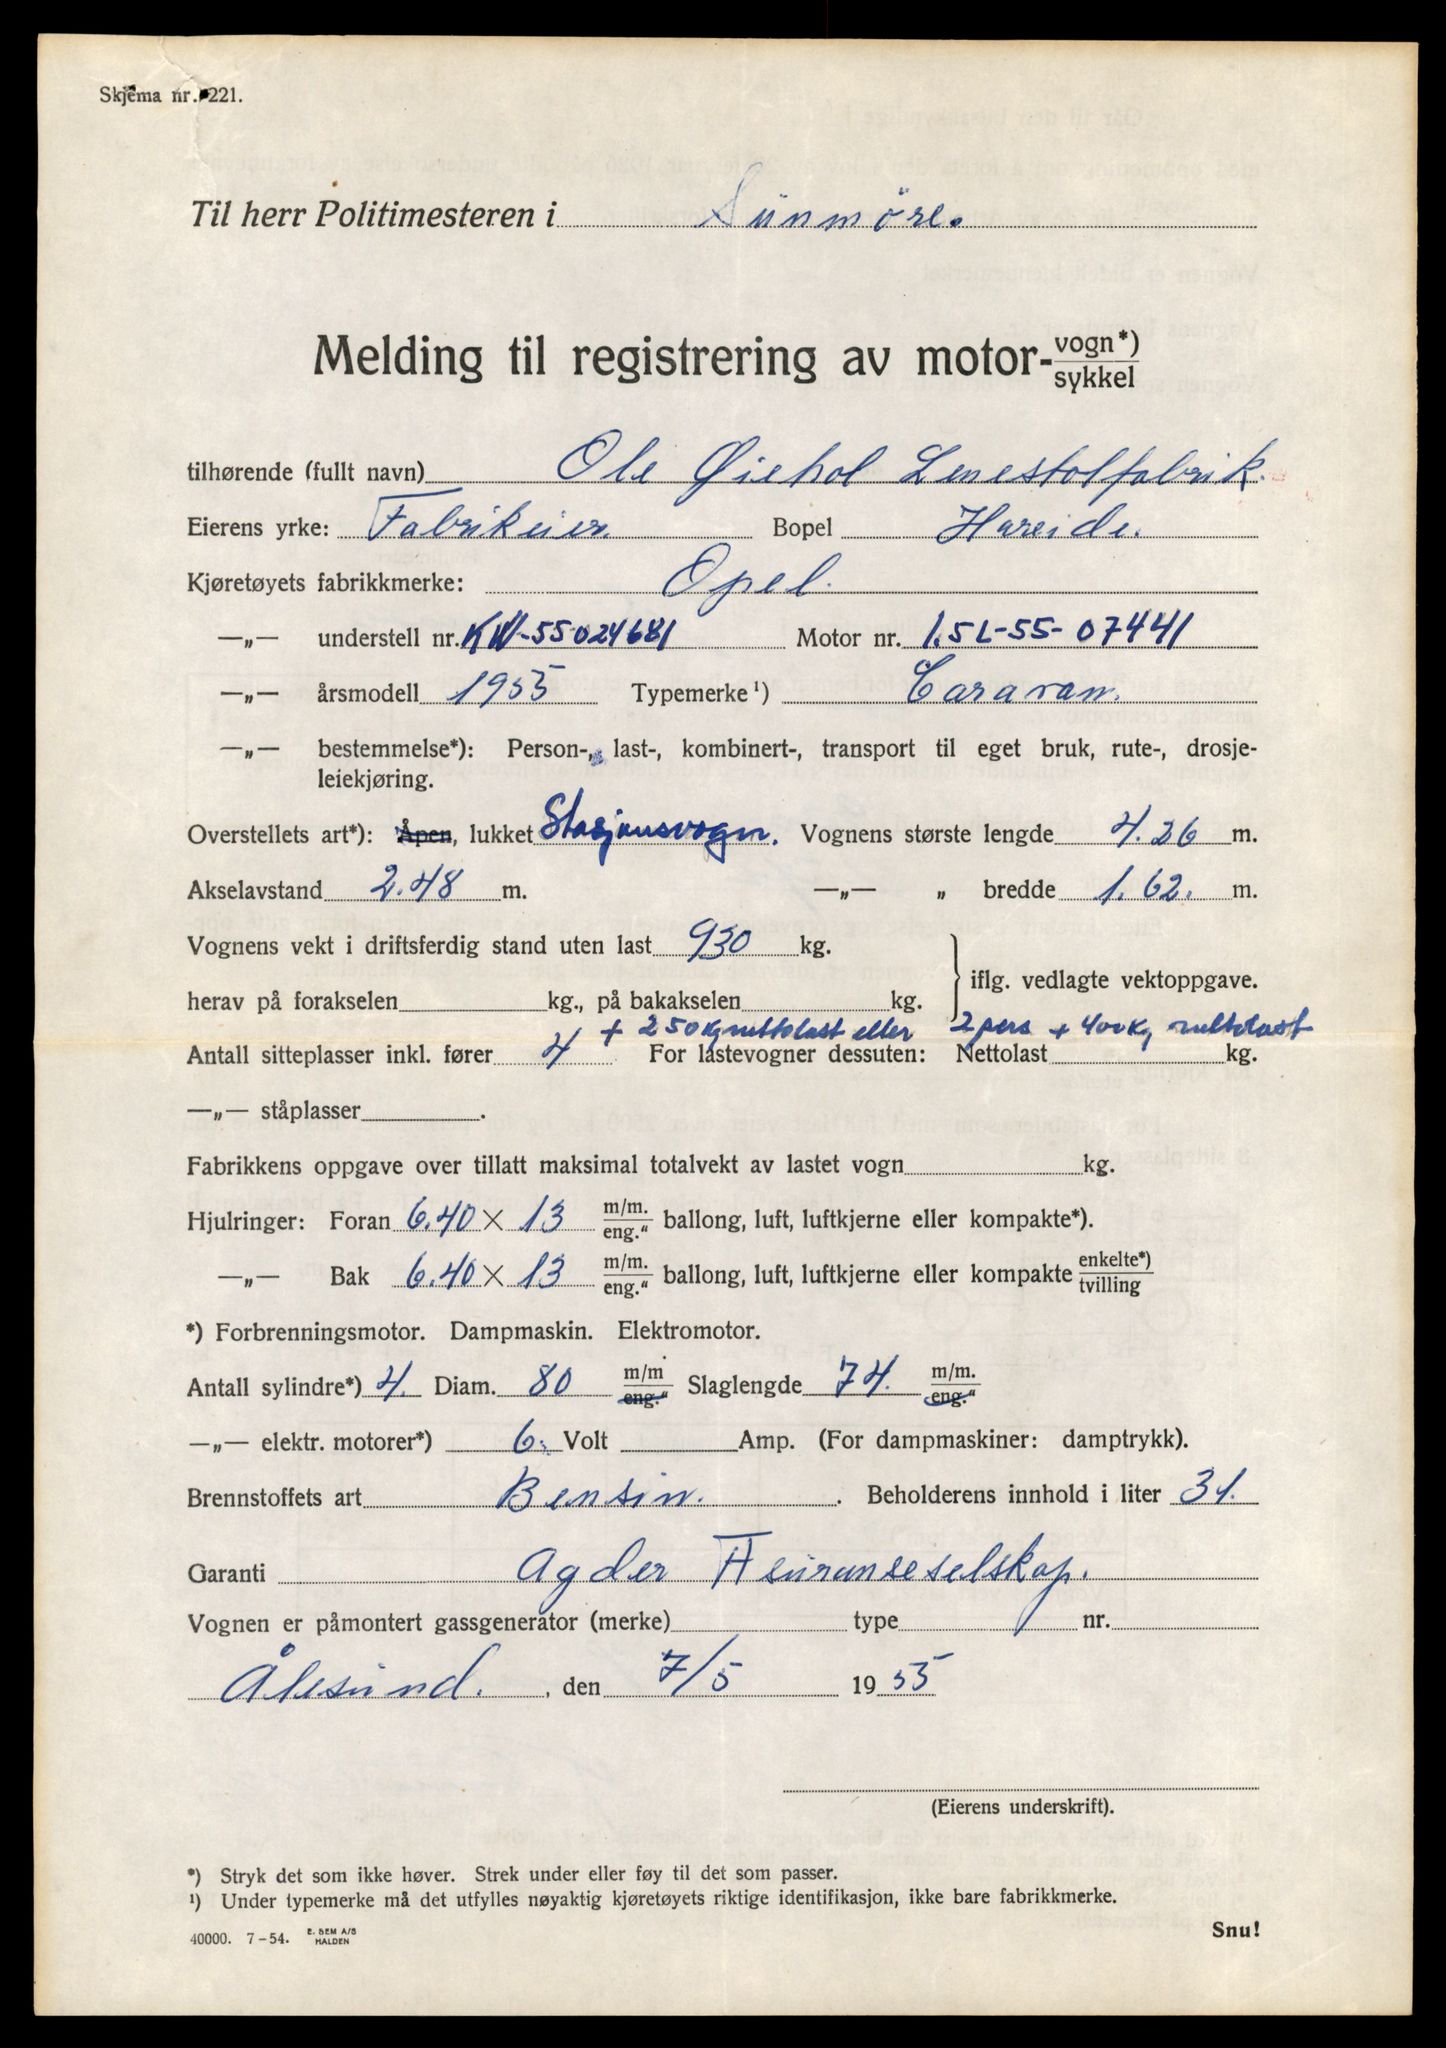 Skjema nr. 221.
Til herr Politimesteren i Sünmöre.
Melding til registrering av motor- vogn*) / sykkel
tilhørende (fullt navn) Ole Øiehol Lenestolfabrik.
Eierens yrke: Fabrikeier. Bopel Hareide.
Kjøretøyets fabrikkmerke: Opel.
—„— understell nr. KW-55024681 Motor nr. 1.5L-55-07441
—„— årsmodell 1955 Typemerke ¹) Caravan.
—„— bestemmelse*): Person-, last-, kombinert-, transport til eget bruk, rute-, drosje-
leiekjøring.
Overstellets art*): Åpen, lukket Stasjonsvogn. Vognens største lengde 4.26 m.
Akselavstand 2.48 m. —„— „ bredde 1.62. m.
Vognens vekt i driftsferdig stand uten last 930 kg.
iflg. vedlagte vektoppgave.
herav på forakselen kg., på bakakselen kg.
+ 250 kg nettolast eller 2 pers + 400 kg nettolast
Antall sitteplasser inkl. fører 4 For lastevogner dessuten: Nettolast kg.
—„— ståplasser .
Fabrikkens oppgave over tillatt maksimal totalvekt av lastet vogn kg.
Hjulringer: Foran 6.40 × 13 m/m. / eng.“ ballong, luft, luftkjerne eller kompakte*).
—„— Bak 6.40 × 13 m/m. / eng.“ ballong, luft, luftkjerne eller kompakte enkelte*) / tvilling
*) Forbrenningsmotor. Dampmaskin. Elektromotor.
Antall sylindre*) 4. Diam. 80 m/m / eng.“ Slaglengde 74. m/m. / eng.“
—„— elektr. motorer*) 6. Volt Amp. (For dampmaskiner: damptrykk).
Brennstoffets art Bensin. . Beholderens innhold i liter 31.
Garanti Agder Assuranseselskap.
Vognen er påmontert gassgenerator (merke) type nr.
Ålesünd. , den 7/5 1955
(Eierens underskrift).
*) Stryk det som ikke høver. Strek under eller føy til det som passer.
¹) Under typemerke må det utfylles nøyaktig kjøretøyets riktige identifikasjon, ikke bare fabrikkmerke.
40000. 7–54. E. SEM A/S HALDEN
Snu!